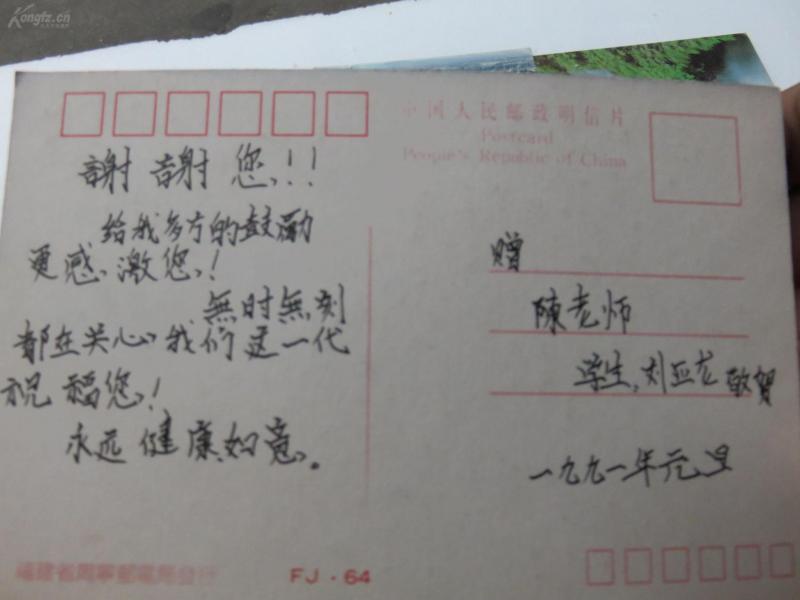 Kongfz.cn
中国人民邮政明信片
Postcard
People's Republic of China
謝 謝 您!!!
给我多方的鼓励
更感激您!
無时無刻
都在关心我们这一代
祝福您!
永远健康如意。
赠
陳老师
学生,刘亚龙敬賀
一九九一年元旦
福建省周寧郵電局發行
FJ·64